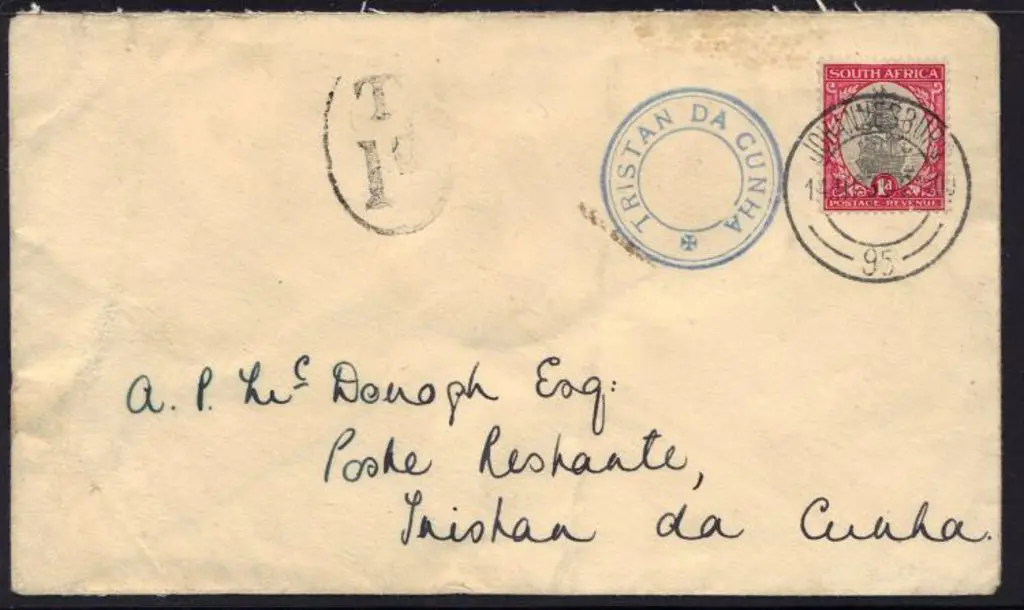 T
TRISTAN DA CUNHA
SOUTH AFRICA
JOHANNESBURG
1d
POSTAGE-REVENUE
95
A. P. McDonogh Esq:
Poste Restante,
Tristan da Cunha.